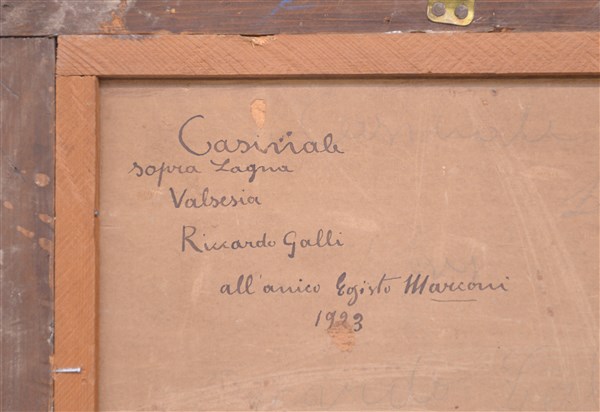 Casinale
sopra Zagna
Valsesia
Riccardo Galli
all'amico Egisto Marconi
1923